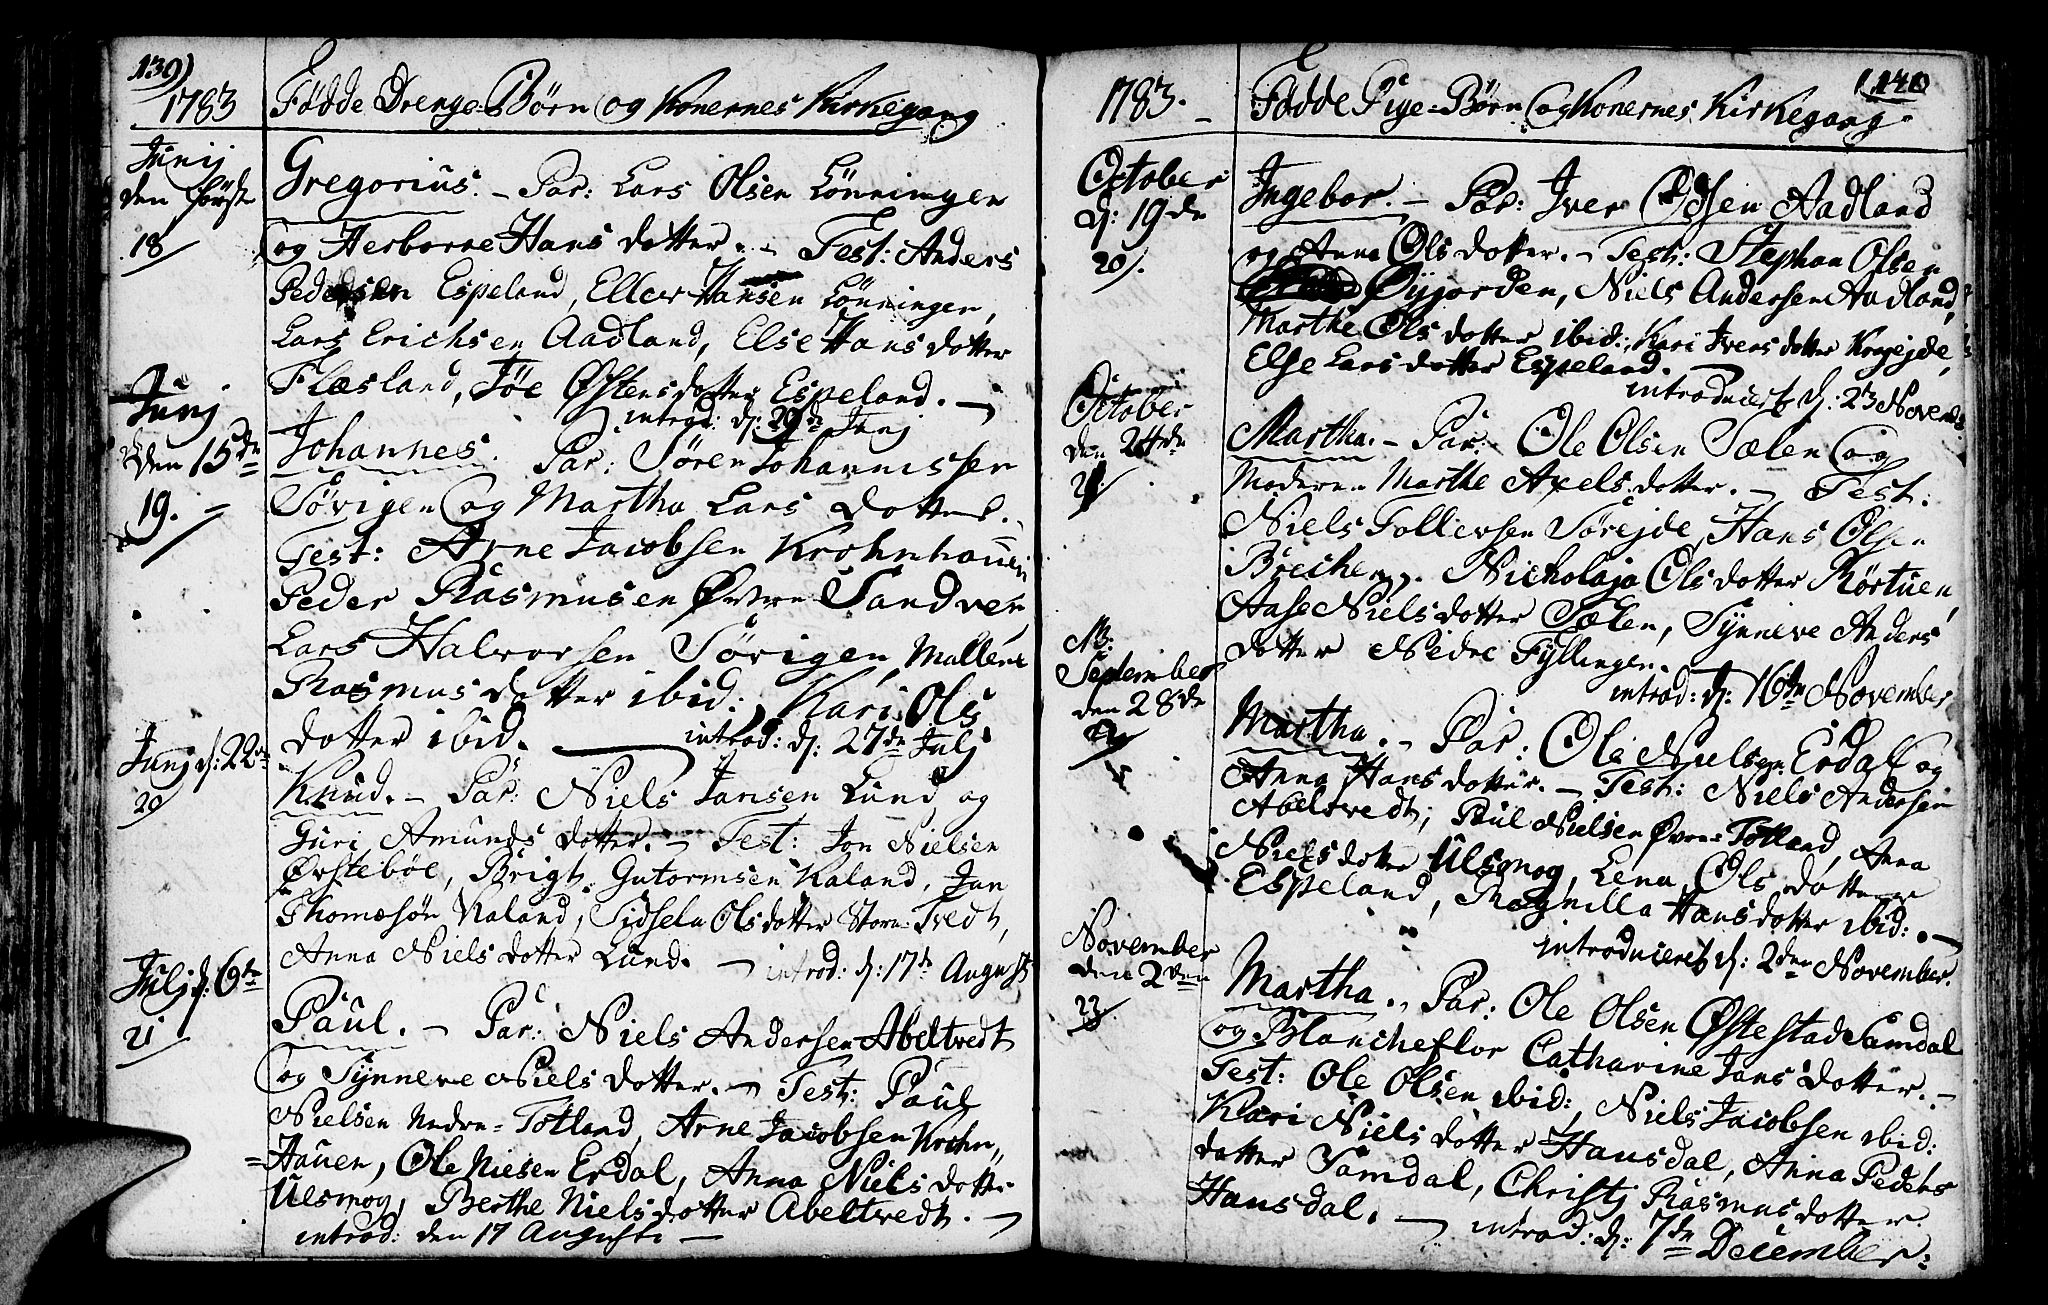 139)
1783 Fødde Drenge-Børn og Konernes Kirkegang
Junij
den første
18
Gregorius. – Par: Lars Olsen Lønningen
og Herborne Hans dotter. – Test: Anders
Pedersen Espeland, Eller Hansen Lønningen,
Lars Erichsen Aadland, Else Hans dotter
Flæsland, Jøe Østensdotter Espeland. –
introd: d: 29de Junj
Junj
den 15de
19.
Johannes. Par: Søren Johannissen
Søvigen og Martha Lars dotter.
Test: Arne Jacobsen Krohnhauen
Peder Rasmusen Øvre Sandven,
Lars Halvorsen Søvigen, Mallene
Rasmus dotter ibid: Kari Ols
dotter ibid. introd: d: 27de Julj
Junj d: 22de
20
Knud. – Par: Niels Jansen Lund og
Guri Amunds dotter. – Test: Jon Nielsen
Ørstebøe, Brigt Gutormsen Kaland, Jan
Thomæsøn Kaland, Sidsela Olsdotter Store-Tvedt,
Anna Nielsdotter Lund. – introd: d: 17de Augusti
Julj d: 6te
21
Paul. – Par: Niels Andersen Abeltvedt
og Synneve Niels dotter. – Test: Paul
Nielsen Nedre-Totland, Arne Jacobsen Krohn,,
=Hauen, Ole Nielsen Erdal, Anna Niels dotter
Ulsmog, Berthe Nielsdotter Abeltvedt. –
introd: den 17 Augusti –
(140
1783. – Fødde Pige-Børn og Konernes Kirkegang.
October
d: 19de
20.
Ingebor. – Par: Iver Olsen Aadland
og Anna Olsdotter. – Test: Stephan Olsen
Øyjorden, Niels Andersen Aadland,
Marthe Olsdotter ibid:, Kari Ivers dotter Krogejde,
Else Larsdotter Espeland. –
introduceret d: 23 Novemb:
October
den 24de
21
Martha. – Par: Ole Olsen Sælen og
Moderen Marthe Axels dotter. – Test:
Niels Tollevsen Sørejde, Hans Olsen
Breche. Nicholaja Olsdotter Rørtuen,
Aase Nielsdotter Sælen, Synneve Anders
dotter Nedre Fyllingen.
introd: d: 16de November
NB:
September
den 28de
22
Martha. – Par: Ole Nielsen Erdal og
Anna Hans dotter. – Test: Niels Andersen
Abeltvedt, Paul Nielsen Øvre-Totland, Anna
Nielsdotter Ulsmog, Lena Ols dotter
Espeland, Ragnilla Hansdotter ibid: . –
introduceret d: 2den November.
November
den 2den
23
Martha. – Par: Ole Olsen Østestad Samdal
og Blancheflor Catharine Jans dotter. –
Test: Ole Olsen ibid:, Niels Jacobsen ibid:
Kari Niels dotter Hansdal, Anna Peders
dotter Samdal, Christj Rasmusdotter
Hansdal. – introd: d: 7de December.